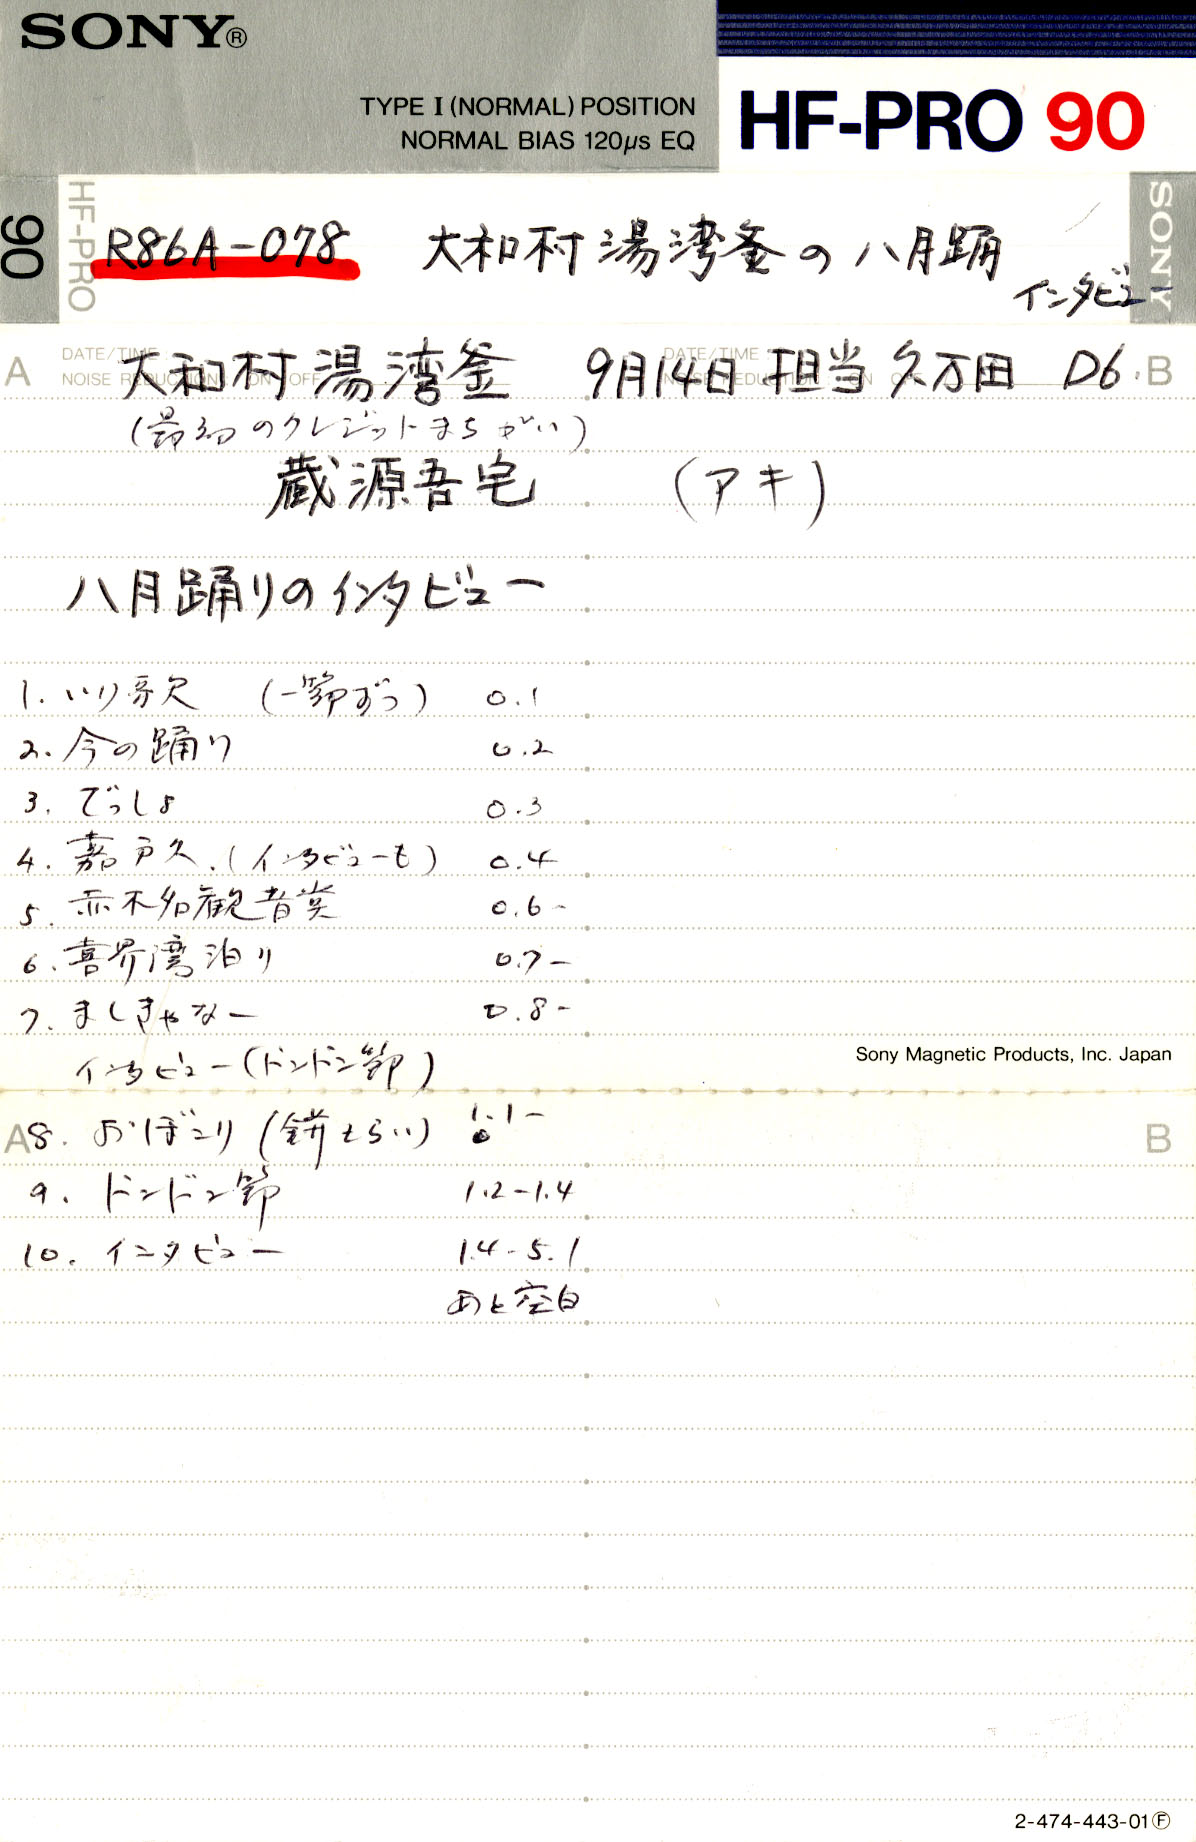 SONY®
TYPE I (NORMAL) POSITION
NORMAL BIAS 120μs EQ
HF-PRO 90
90
HF-PRO
R86A-078 大和村湯湾釜の八月踊
インタビュー
SONY
A DATE/TIME NOISE REDUCTION ON OFF
B DATE/TIME NOISE REDUCTION ON OFF
大和村湯湾釜 9月14日 担当 久万田 D6.
(最初のクレジットまちがい)
蔵源吾宅 (アキ)
八月踊りのインタビュー
1. いり哥欠 (一節ずつ) 0.1
2. 今の踊り 0.2
3. でっしょ 0.3
4. 嘉戸久.(インタビューも) 0.4
5. 赤木名観音堂 0.6-
6. 喜界湾泊り 0.7-
7. ましきゃなー 0.8-
インタビュー(ドンドン節)
Sony Magnetic Products, Inc. Japan
A
B
8. おぼこり(餅もらい) 1.1-
9. ドンドン節 1.2-1.4
10. インタビュー 1.4-5.1
あと空白
2-474-443-01Ⓕ